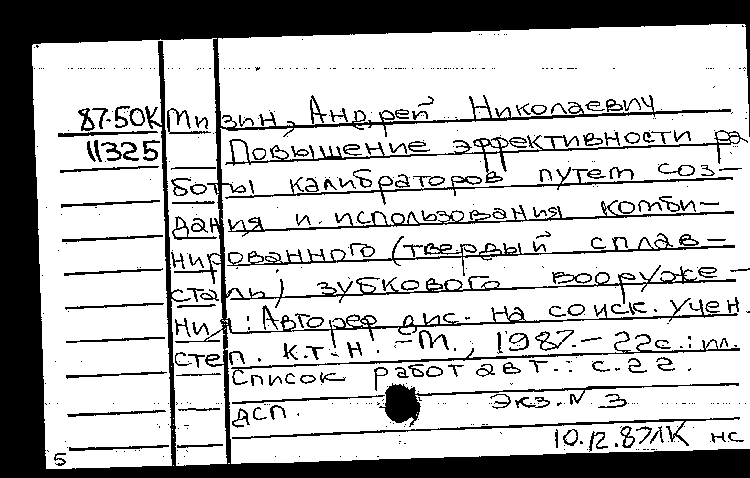 87-50К Мизин, Андрей Николаевич
11325 Повышение эффективности ра
боты калибраторов путем соз-
дания и использования комби-
нированного (твердый сплав-
сталь) зубкового вооруже-
ния: Автореф дис. на соиск. учен.
степ. к.т.н. -М., 1987.- 22с.: ил.
Список работ авт.: с.22.
дсп. Экз. N 3
10.12.87 ЛК нс
5